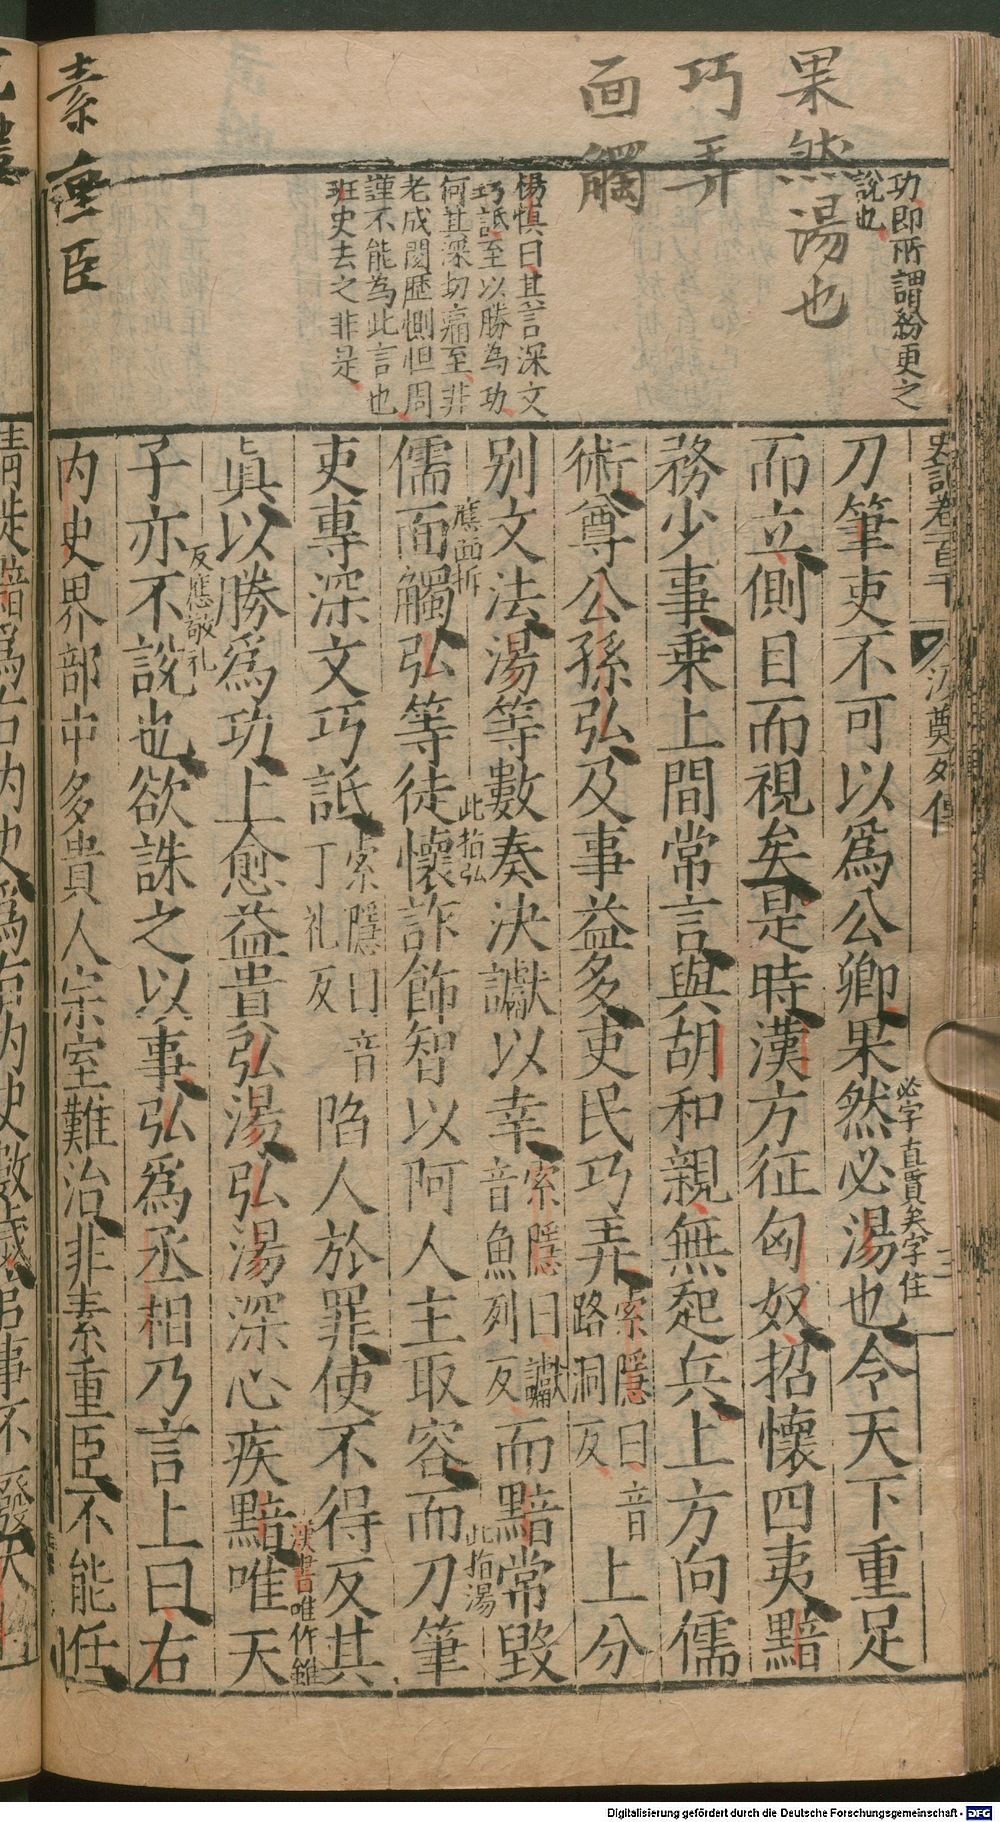 果然湯也
巧弄
面觸
功即所謂紛更之
說也
楊慎曰其言深文
巧詆至以勝為功
何其深切痛至非
老成閱歷惻怛周
謹不能為此言也
班史去之非是
史記卷百二十
汲鄭列傳
三
刀筆吏不可以爲公卿果然必湯也令天下重足
必字直貫矣字住
而立側目而視矣是時漢方征匈奴招懷四夷黯
務少事乗上間常言與胡和親無起兵上方向儒
術尊公孫弘及事益多吏民巧弄索隱曰音路洞反上分
別文法湯等數奏決讞以幸索隱曰讞音魚列反而黯常毀
應面折
此指弘
此指湯
儒面觸弘等徒懷詐飾智以阿人主取容而刀筆
吏專深文巧詆索隱曰音丁礼反陷人於罪使不得反其
漢書唯作雖
眞以勝爲功上愈益貴弘湯弘湯深心疾黯唯天
反應敬礼
子亦不說也欲誅之以事弘爲丞相乃言上曰右
内史界部中多貴人宗室難治非素重臣不能任
素重臣
Digitalisierung gefördert durch die Deutsche Forschungsgemeinschaft - DFG